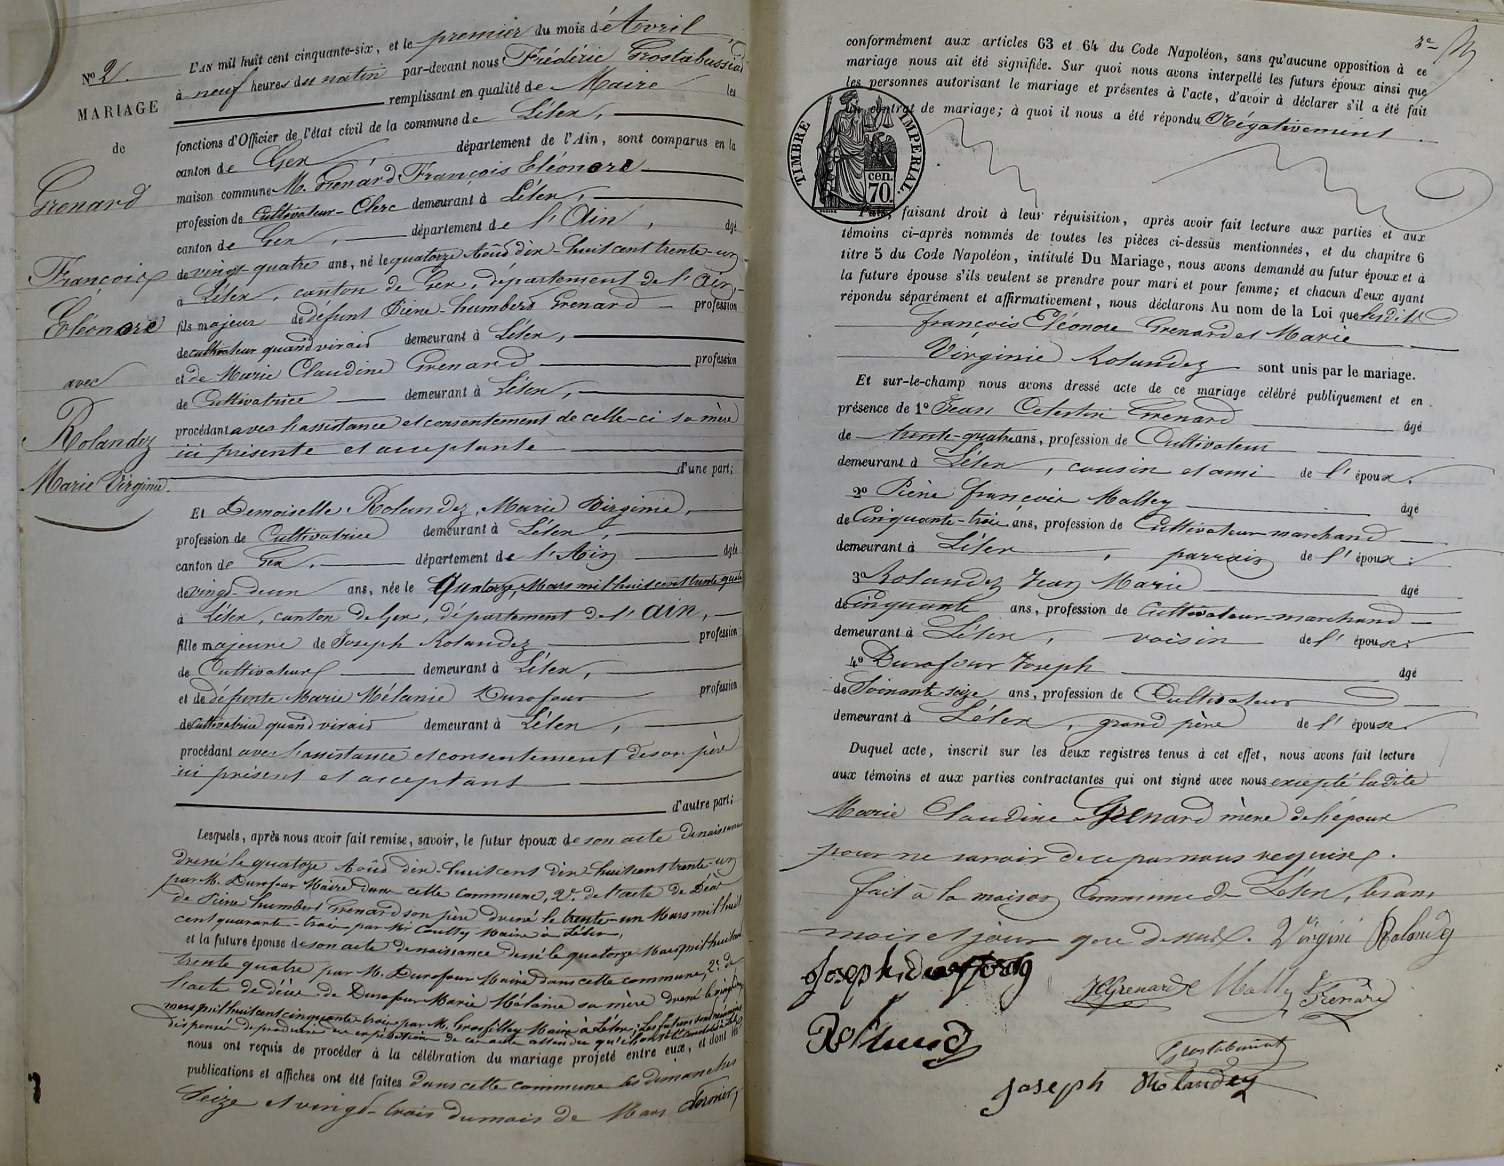 L'AN mil huit cent cinquante-six, et le premier du mois d'Avril
N° 2
à neuf heures du matin par-devant nous Frédéric Grostabussiat
MARIAGE
remplissant en qualité de Maire les
de
fonctions d'Officier de l'état civil de la commune de Lélex,
canton de Gex département de l'Ain, sont comparus en la
maison commune M. Grenard François Eléonore
Grenard
profession de Cultivateur-Clerc demeurant à Lélex,
canton de Gex, département de l'Ain, âgé
de vingt-quatre ans, né le quatorze Août dix-huit cent trente-un
François
à Lélex, canton de Gex, département de l'Ain,
fils majeur de défunt Pierre-humbert Grenard profession
Eléonore
de cultivateur quand vivait demeurant à Lélex,
et de Marie Claudine Grenard profession
avec
de Cultivatrice demeurant à Lélex,
procédant avec l'assistance et consentement de celle-ci sa mère
Rolandez
ici présente et acceptante
d'une part;
Marie Virginie.
Et Demoiselle Rolandez Marie Virginie,
profession de Cultivatrice demeurant à Lélex,
canton de Gex, département de l'Ain âgée
de vingt-deux ans, née le Quatorze Mars mil huit cent trente quatre
à Lélex, canton de Gex, département de l'Ain,
fille majeure de Joseph Rolandez profession
de Cultivateur demeurant à Lélex,
et de défunte Marie Mélanie Durafour profession
de cultivatrice quand vivait demeurant à Lélex,
procédant avec l'assistance et consentement de son père
ici présent et acceptant
d'autre part;
Lesquels, après nous avoir fait remise, savoir, le futur époux de son acte de naissance
dressé le quatorze Août dix-huit cent dix huit cent trente-un
par M. Durafour Maire dans cette commune, 2° de l'acte de Décès
de Pierre humbert Grenard son père dressé le trente-un Mars mil huit
cent quarante-trois par Mr Maire à Lélex,
et la future épouse de son acte de naissance dressé le quatorze Mars mil huit cent
trente quatre par M. Durafour Maire dans cette commune, 2° de
l'acte de décès de Durafour Marie Mélanie sa mère dressé le
mars mil huit cent cinquante-trois par M. Maire à Lélex;
dispensé de produire une expédition de cet acte attendu qu'il
nous ont requis de procéder à la célébration du mariage projeté entre eux, et dont les
publications et affiches ont été faites dans cette commune les dimanches
Seize et vingt-trois du mois de Mars dernier,
conformément aux articles 63 et 64 du Code Napoléon, sans qu'aucune opposition à ce
mariage nous ait été signifiée. Sur quoi nous avons interpellé les futurs époux ainsi que
les personnes autorisant le mariage et présentes à l'acte, d'avoir à déclarer s'il a été fait
un contrat de mariage; à quoi il nous a été répondu Négativement
TIMBRE IMPÉRIAL.
70 cen.
Puis, faisant droit à leur réquisition, après avoir fait lecture aux parties et aux
témoins ci-après nommés de toutes les pièces ci-dessus mentionnées, et du chapitre 6
titre 5 du Code Napoléon, intitulé Du Mariage, nous avons demandé au futur époux et à
la future épouse s'ils veulent se prendre pour mari et pour femme; et chacun d'eux ayant
répondu séparément et affirmativement, nous déclarons Au nom de la Loi que lesdits
françois Eléonore Grenard et Marie
Virginie Rolandez sont unis par le mariage.
Et sur-le-champ nous avons dressé acte de ce mariage célébré publiquement et en
présence de 1° Jean Celestin Grenard âgé
de trente-quatre ans, profession de Cultivateur
demeurant à Lélex, cousin et ami de l'époux.
2° Pierre françois Malley âgé
de Cinquante-trois ans, profession de Cultivateur-marchand
demeurant à Lélex, parrain de l'époux.
3° Rolandez Jean Marie âgé
de Cinquante ans, profession de Cultivateur-marchand
demeurant à Lélex, voisin de l'épouse.
4° Durafour Joseph âgé
de Soixante-seize ans, profession de Cultivateur
demeurant à Lélex, grand père de l'épouse.
Duquel acte, inscrit sur les deux registres tenus à cet effet, nous avons fait lecture
aux témoins et aux parties contractantes qui ont signé avec nous excepté ladite
Marie Claudine Grenard mère de l'époux
pour ne savoir de ce par nous requise.
fait à la maison Commune de Lélex, les an,
mois et jour que dessus. Virgini Rolandez
Joseph durafourg
Grenard Malley Grenard
Rolandez
Grostabussiat
Joseph Rolandez